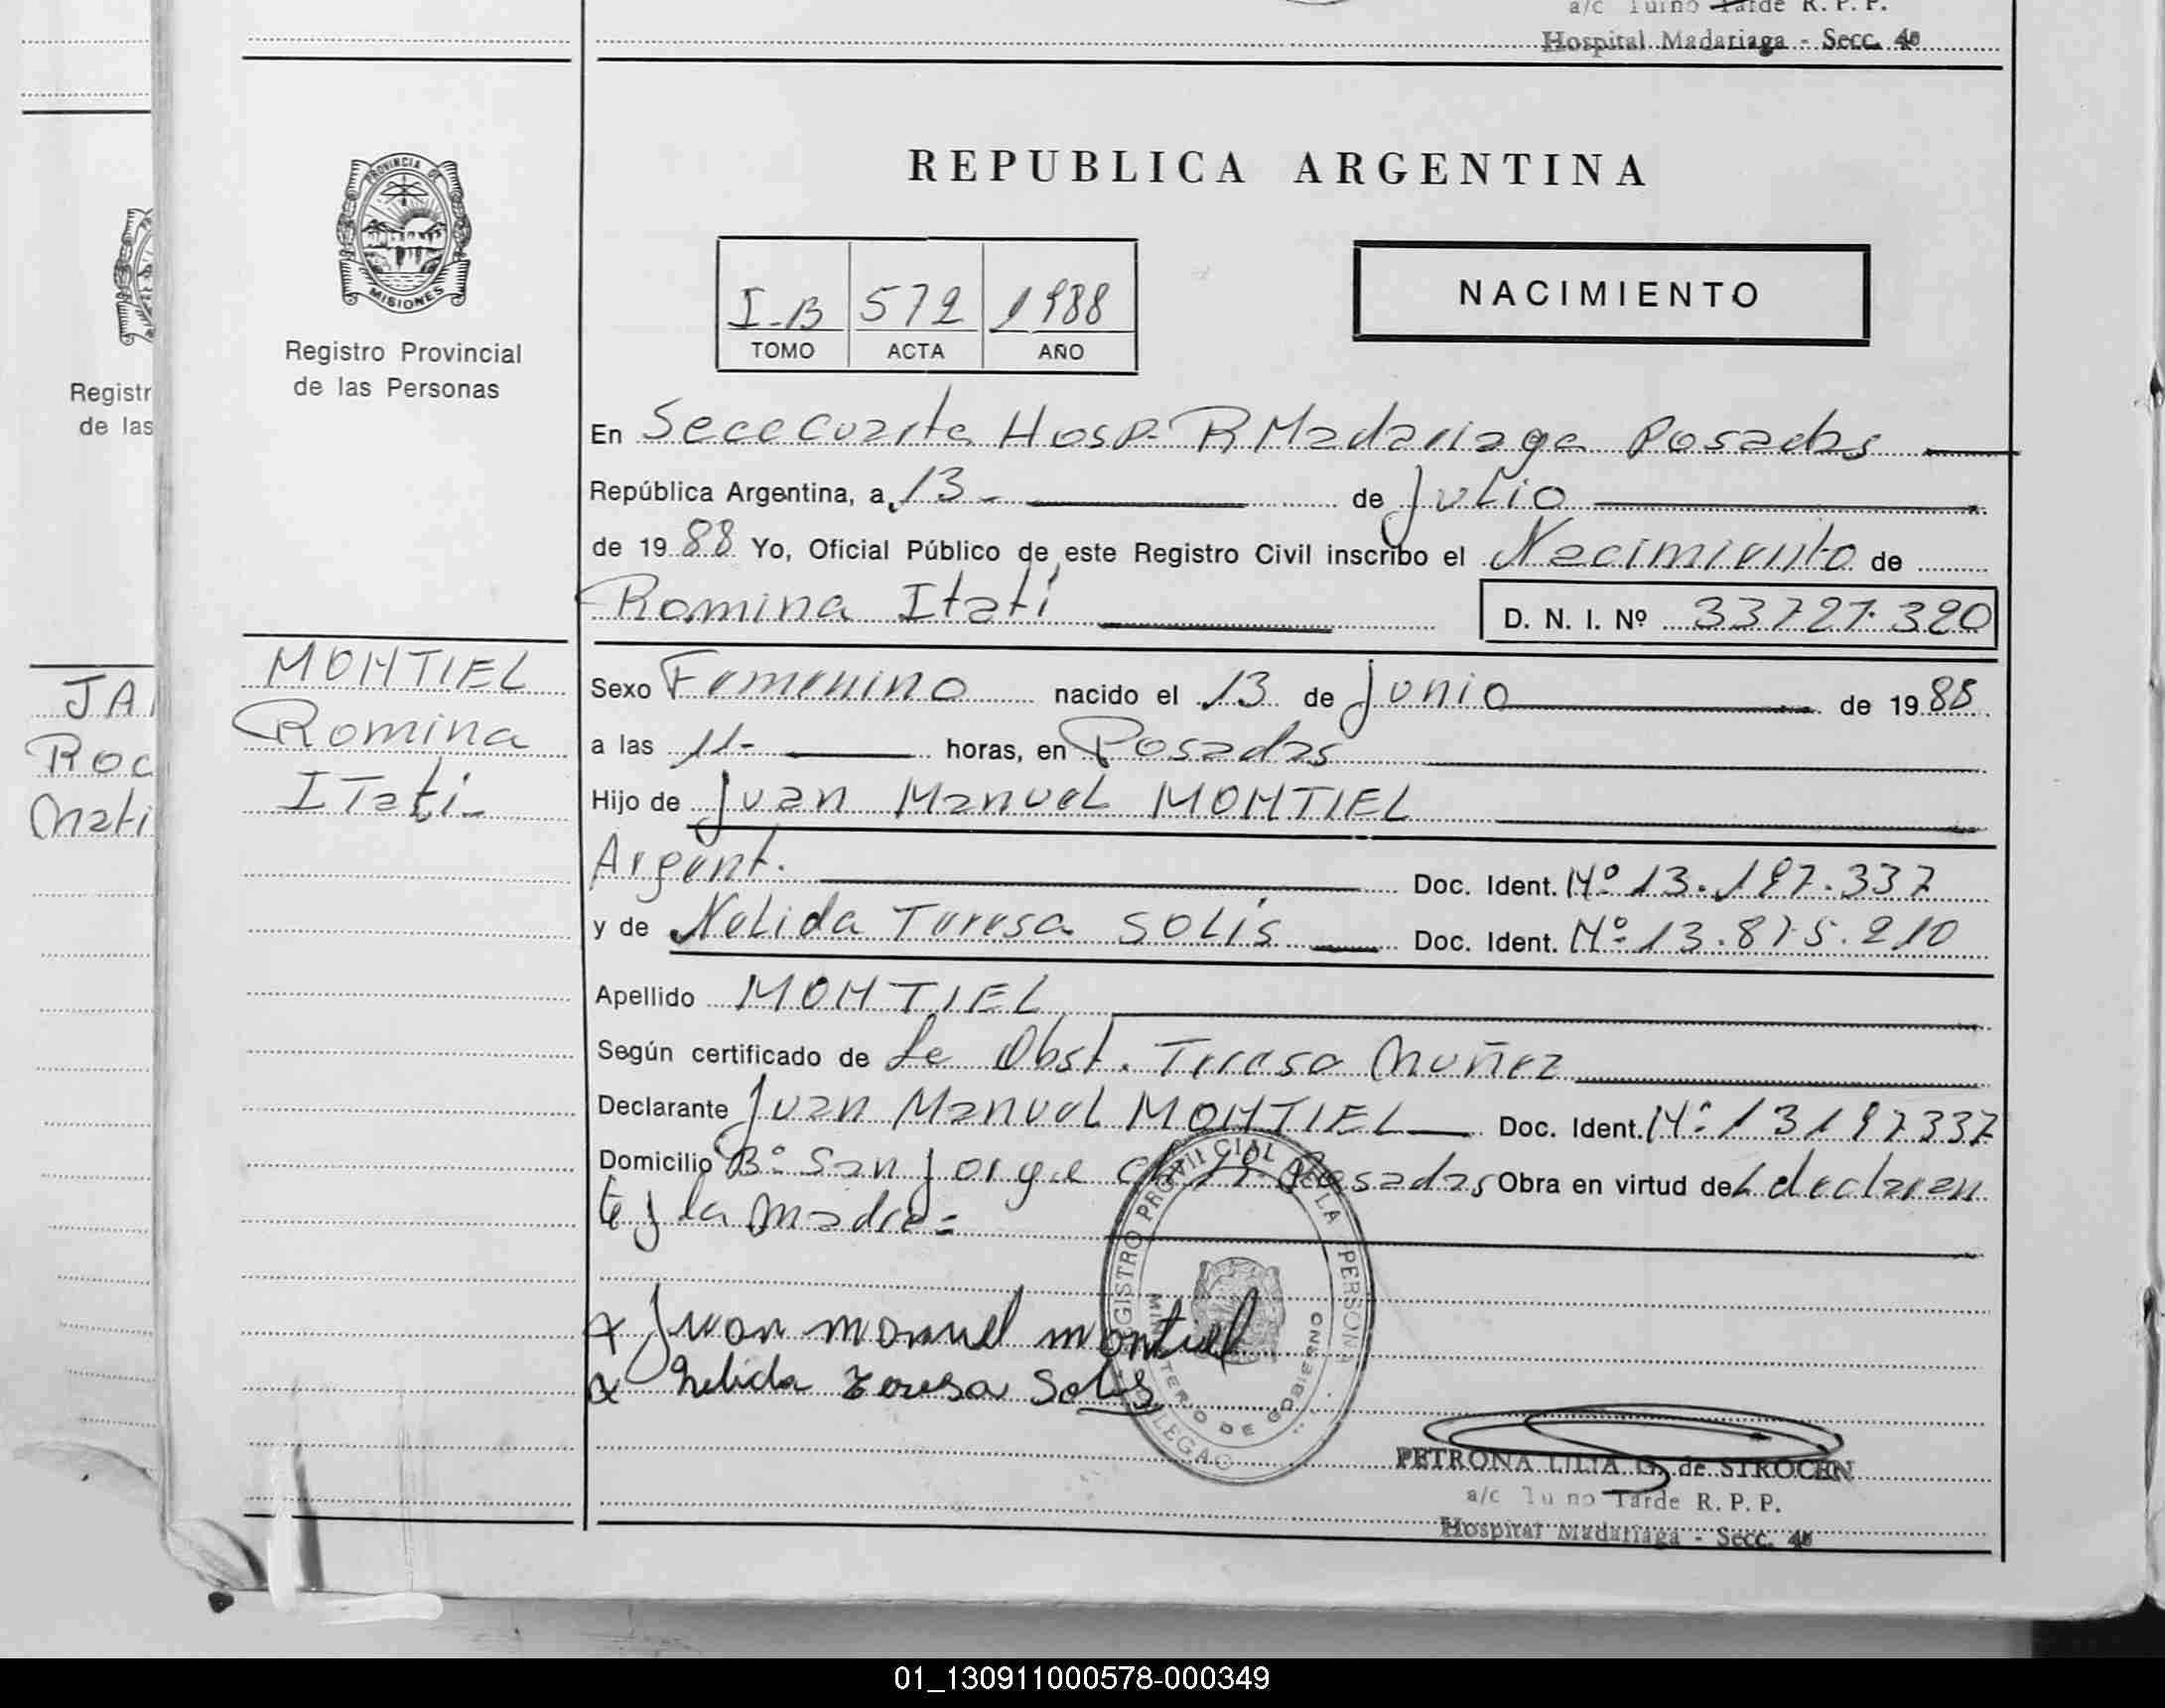 a/c Turno Tarde R. P. P.
Hospital Madariaga - Secc. 4a
PROVINCIA DE
MISIONES
Registro Provincial
de las Personas
REPUBLICA ARGENTINA
I-B 572 1988
TOMO ACTA AÑO
NACIMIENTO
Registr
de las
En Secc Cuarta Hosp. R Madariaga Posadas
República Argentina, a 13 - de Julio
de 19 88 Yo, Oficial Público de este Registro Civil inscribo el Nacimiento de
Romina Itatí
D. N. I. Nº 33727.320
JA
Roc
Mati
MONTIEL
Romina
ITatí-
Sexo Femenino nacido el 13 de Junio de 19 88
a las 11- horas, en Posadas
Hijo de Juan Manuel MONTIEL
Argent. Doc. Ident. Nº 13.197.337
y de Nelida Teresa SOLIS Doc. Ident. Nº 13.875.210
Apellido MONTIEL
Según certificado de La Obst. Teresa Muñez
Declarante Juan Manuel MONTIEL Doc. Ident. Nº 13197337
Domicilio Bº San Jorge Posadas Obra en virtud del declaran
te y la Madre=
x Juan manuel montiel
x nelida teresa Solis
REGISTRO PROVINCIAL DE LA PERSONA
MINISTERIO DE GOBIERNO
PETRONA LILIA G. de SIROCEN
a/c Turno Tarde R. P. P.
Hospital Madariaga - Secc. 4a
01_130911000578-000349